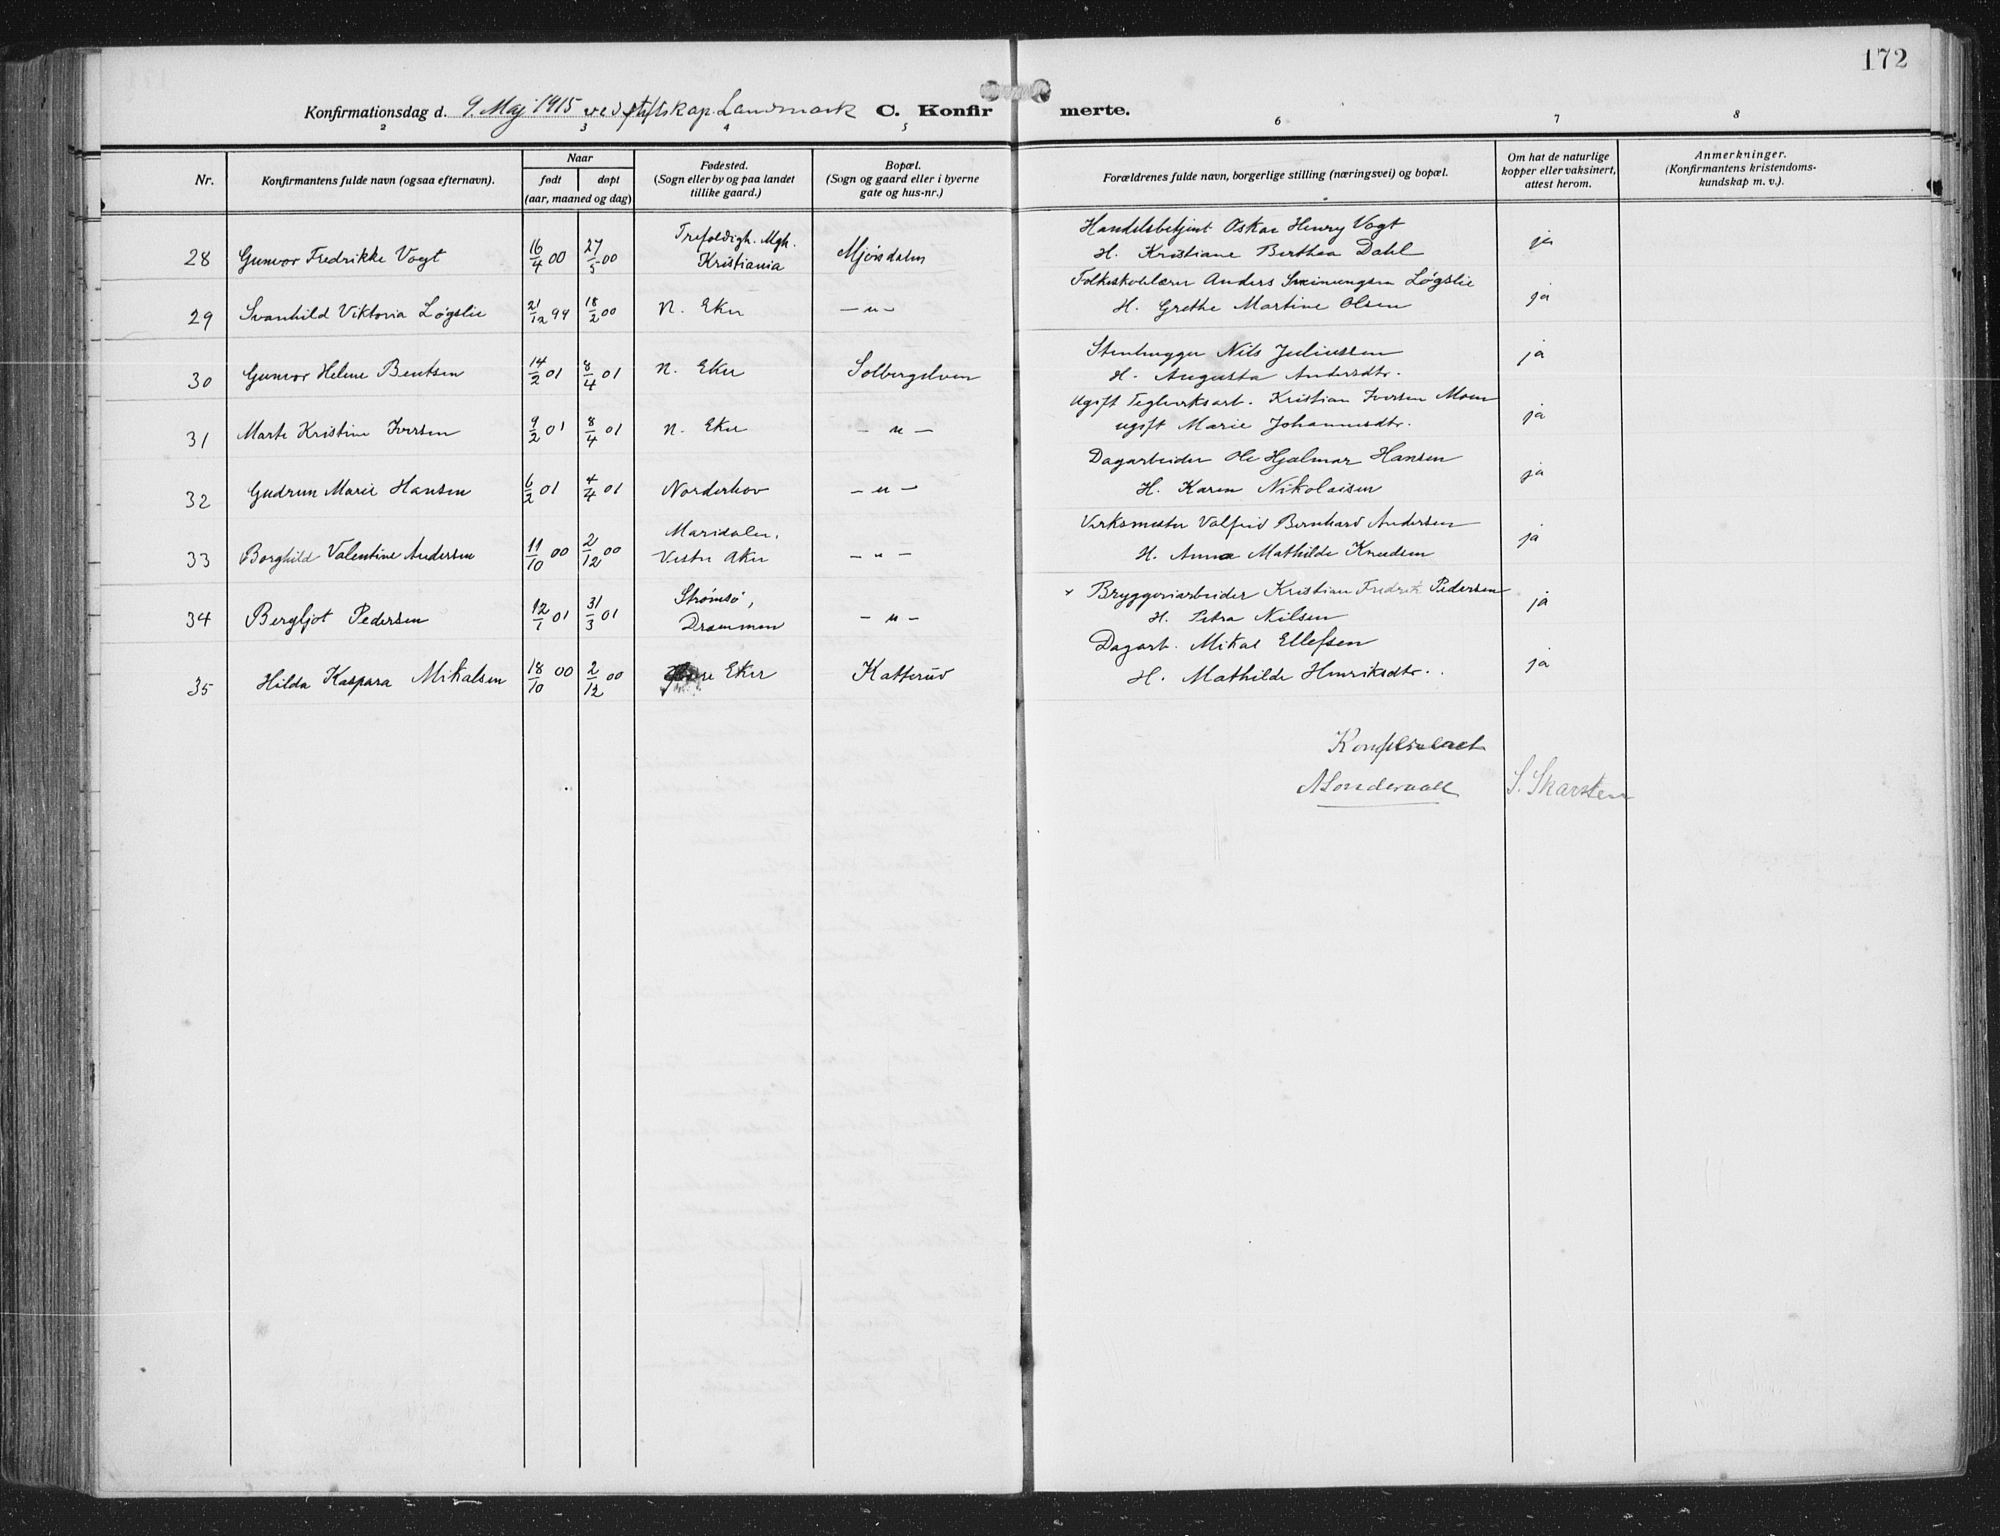 172
Konfirmationsdag d. 9. Maj 1915 ved stiftskap. Landmark C. Konfirmerte.
2 3 4 5 6 7 8
Nr.
Konfirmantens fulde navn (ogsaa efternavn).
Naar
født døpt
(aar, maaned og dag)
Fødested.
(Sogn eller by og paa landet
tillike gaard.)
Bopæl.
(Sogn og gaard eller i byerne
gate og hus-nr.)
Forældrenes fulde navn, borgerlige stilling (næringsvei) og bopæl.
Om hat de naturlige
kopper eller vaksinert,
attest herom.
Anmerkninger.
(Konfirmantens kristendoms-
kundskap m. v.).
Trefoldigh. Mgh. Handelsbetjent Oskar Henry Vogt
28 Gunvor Fredrikke Vogt 16/4 00 27/5 00 Kristiania Mjøndalen H. Kristiane Berthea Dahl ja
Folkeskolelærer Anders Løgslie
29 Svanhild Viktoria Løgslie 21/12 99 18/2 00 N. Eker – " – H. Grethe Martine Olsen ja
Stenhugger Nils Juliussen
30 Gunvor Helene Bentsen 14/2 01 8/4 01 N. Eker Solbergelven H. Augusta Andersdtr. ja
Ugift Teglverksarb. Kristian Iversen Moen
31 Marte Kristine Iversen 9/2 01 8/4 01 N. Eker – " – ugift Marie Johannesdtr. ja
Dagarbeider Ole Hjalmar Hansen
32 Gudrun Marie Hansen 6/2 01 4/4 01 Norderhov – " – H. Karen Nikolaisen ja
Maridalen, Verksmester Valfrid Bernhard Andersen
33 Borghild Valentine Andersen 11/10 00 2/12 00 Vestre Aker – " – H. Anna Mathilde Knudsen ja
Strømsø, Bryggeriarbeider Kristian Fredrik Pedersen
34 Bergljot Pedersen 12/1 01 31/3 01 Drammen – " – H. Petra Nilsen ja
Dagarb. Mikal Ellefsen
35 Hilda Kaspara Mikalsen 18/10 00 2/12 00 Øvre Eker Katterud H. Mathilde Henriksdtr. ja
Konfereret
S. Skarsten